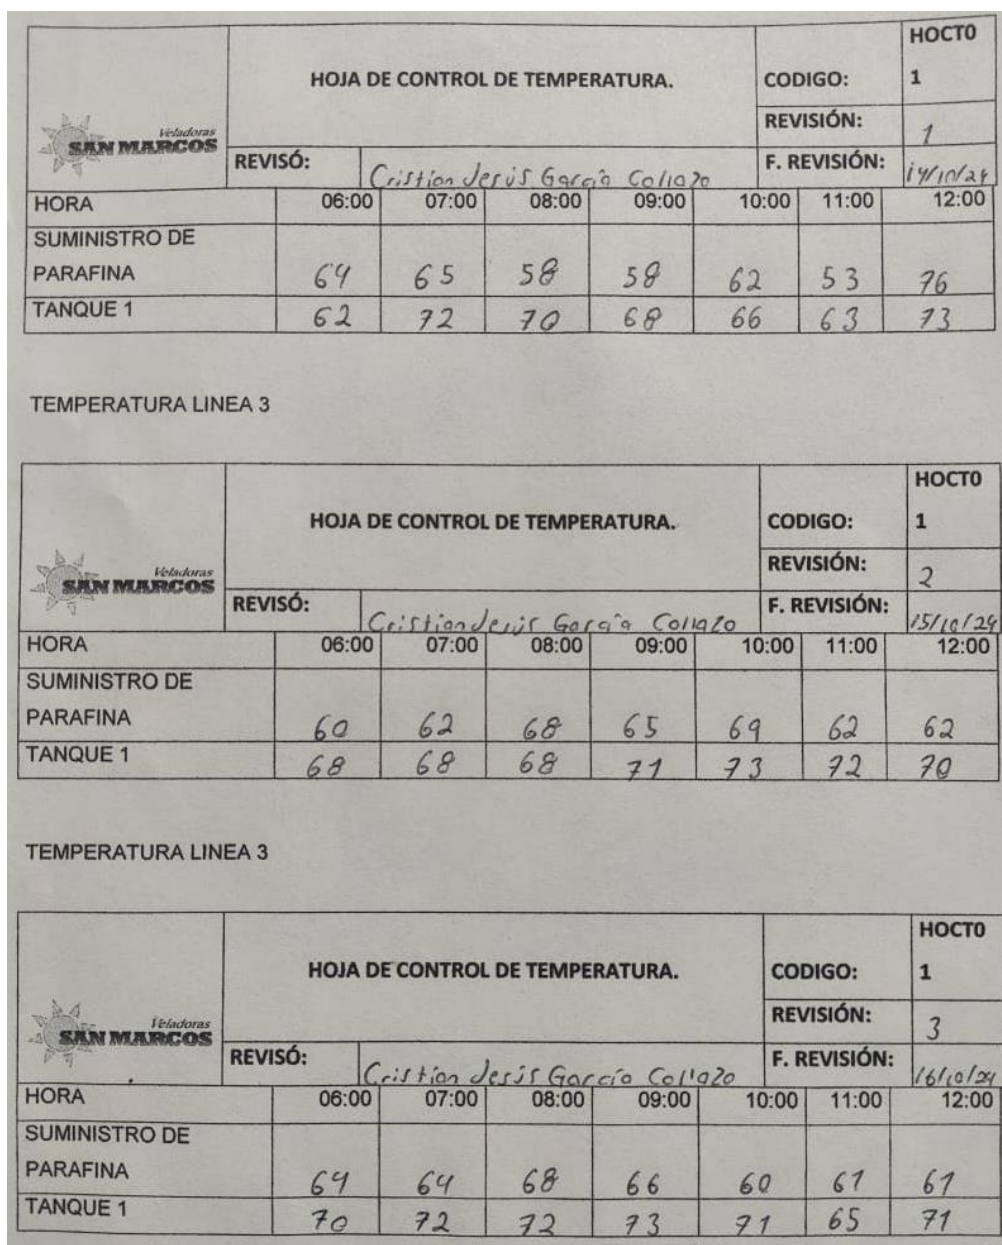 HOCT0
HOJA DE CONTROL DE TEMPERATURA. CODIGO: 1
Veladoras
SAN MARCOS
REVISIÓN: 1
REVISÓ: Cristian Jesús García Collazo F. REVISIÓN: 14/10/24
HORA 06:00 07:00 08:00 09:00 10:00 11:00 12:00
SUMINISTRO DE
PARAFINA 64 65 58 58 62 53 76
TANQUE 1 62 72 70 68 66 63 73
TEMPERATURA LINEA 3
HOCT0
HOJA DE CONTROL DE TEMPERATURA. CODIGO: 1
Veladoras
SAN MARCOS
REVISIÓN: 2
REVISÓ: Cristian Jesús García Collazo F. REVISIÓN: 15/10/24
HORA 06:00 07:00 08:00 09:00 10:00 11:00 12:00
SUMINISTRO DE
PARAFINA 60 62 68 65 69 62 62
TANQUE 1 68 68 68 71 73 72 70
TEMPERATURA LINEA 3
HOCT0
HOJA DE CONTROL DE TEMPERATURA. CODIGO: 1
Veladoras
SAN MARCOS
REVISIÓN: 3
REVISÓ: Cristian Jesús García Collazo F. REVISIÓN: 16/10/24
HORA 06:00 07:00 08:00 09:00 10:00 11:00 12:00
SUMINISTRO DE
PARAFINA 64 64 68 66 60 61 61
TANQUE 1 70 72 72 73 71 65 71